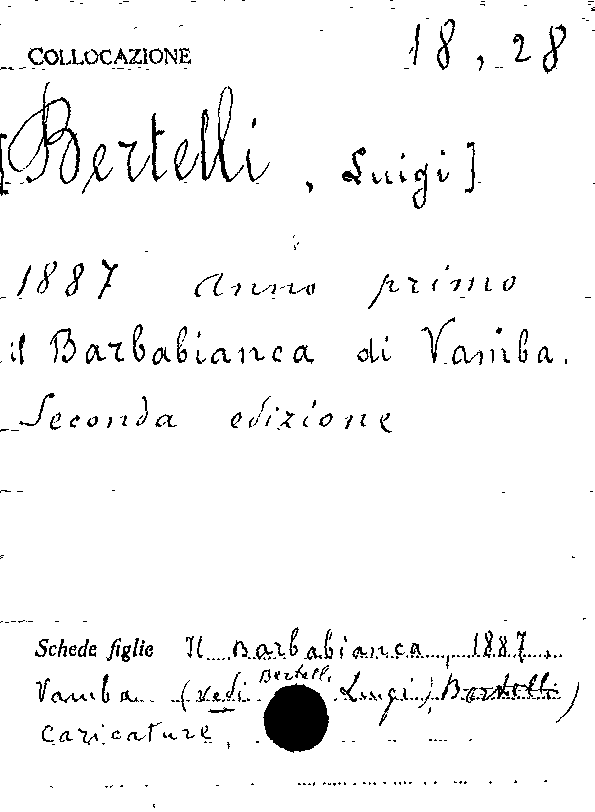 COLLOCAZIONE 18, 28
[Bertelli, Luigi]
1887 anno primo
il Barbabianca di Vamba.
Seconda edizione
Schede figlie Il Barbabianca, 1887.
Bertelli
Vamba (vedi Luigi), Bertelli)
caricature,